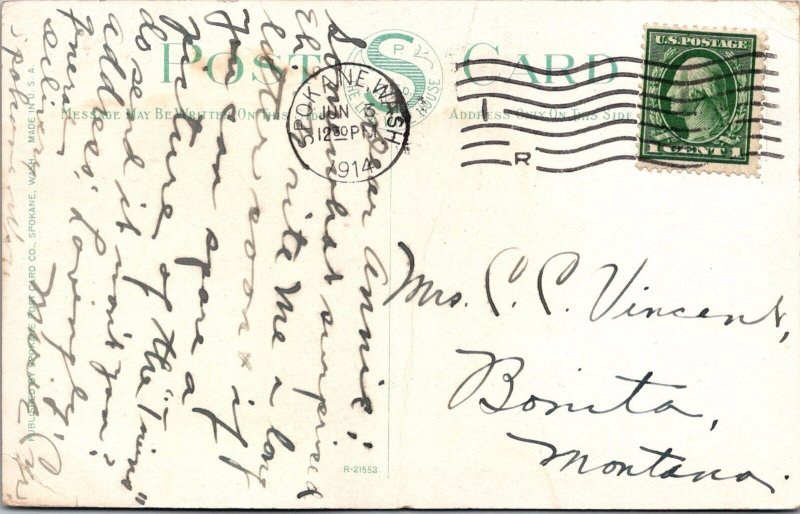 POST CARD
MESSAGE MAY BE WRITTEN ON THIS SIDE
ADDRESS ONLY ON THIS SIDE
SPOKANE, WASH.
JUN
12 30 PM
1914
R
U.S. POSTAGE
1 CENT 1
Mrs. C. C. Vincent,
Bonita,
Montana.
Dear Annie;
Somewhat surprised
Eh rite me a long
letter soon & if
you can spare a
picture of the "Twins"
do send it wont you?
address; General
Delivery
Lovingly
Spokane
PUBLISHED BY SPOKANE POST CARD CO., SPOKANE, WASH. MADE IN U.S.A.
R-21552